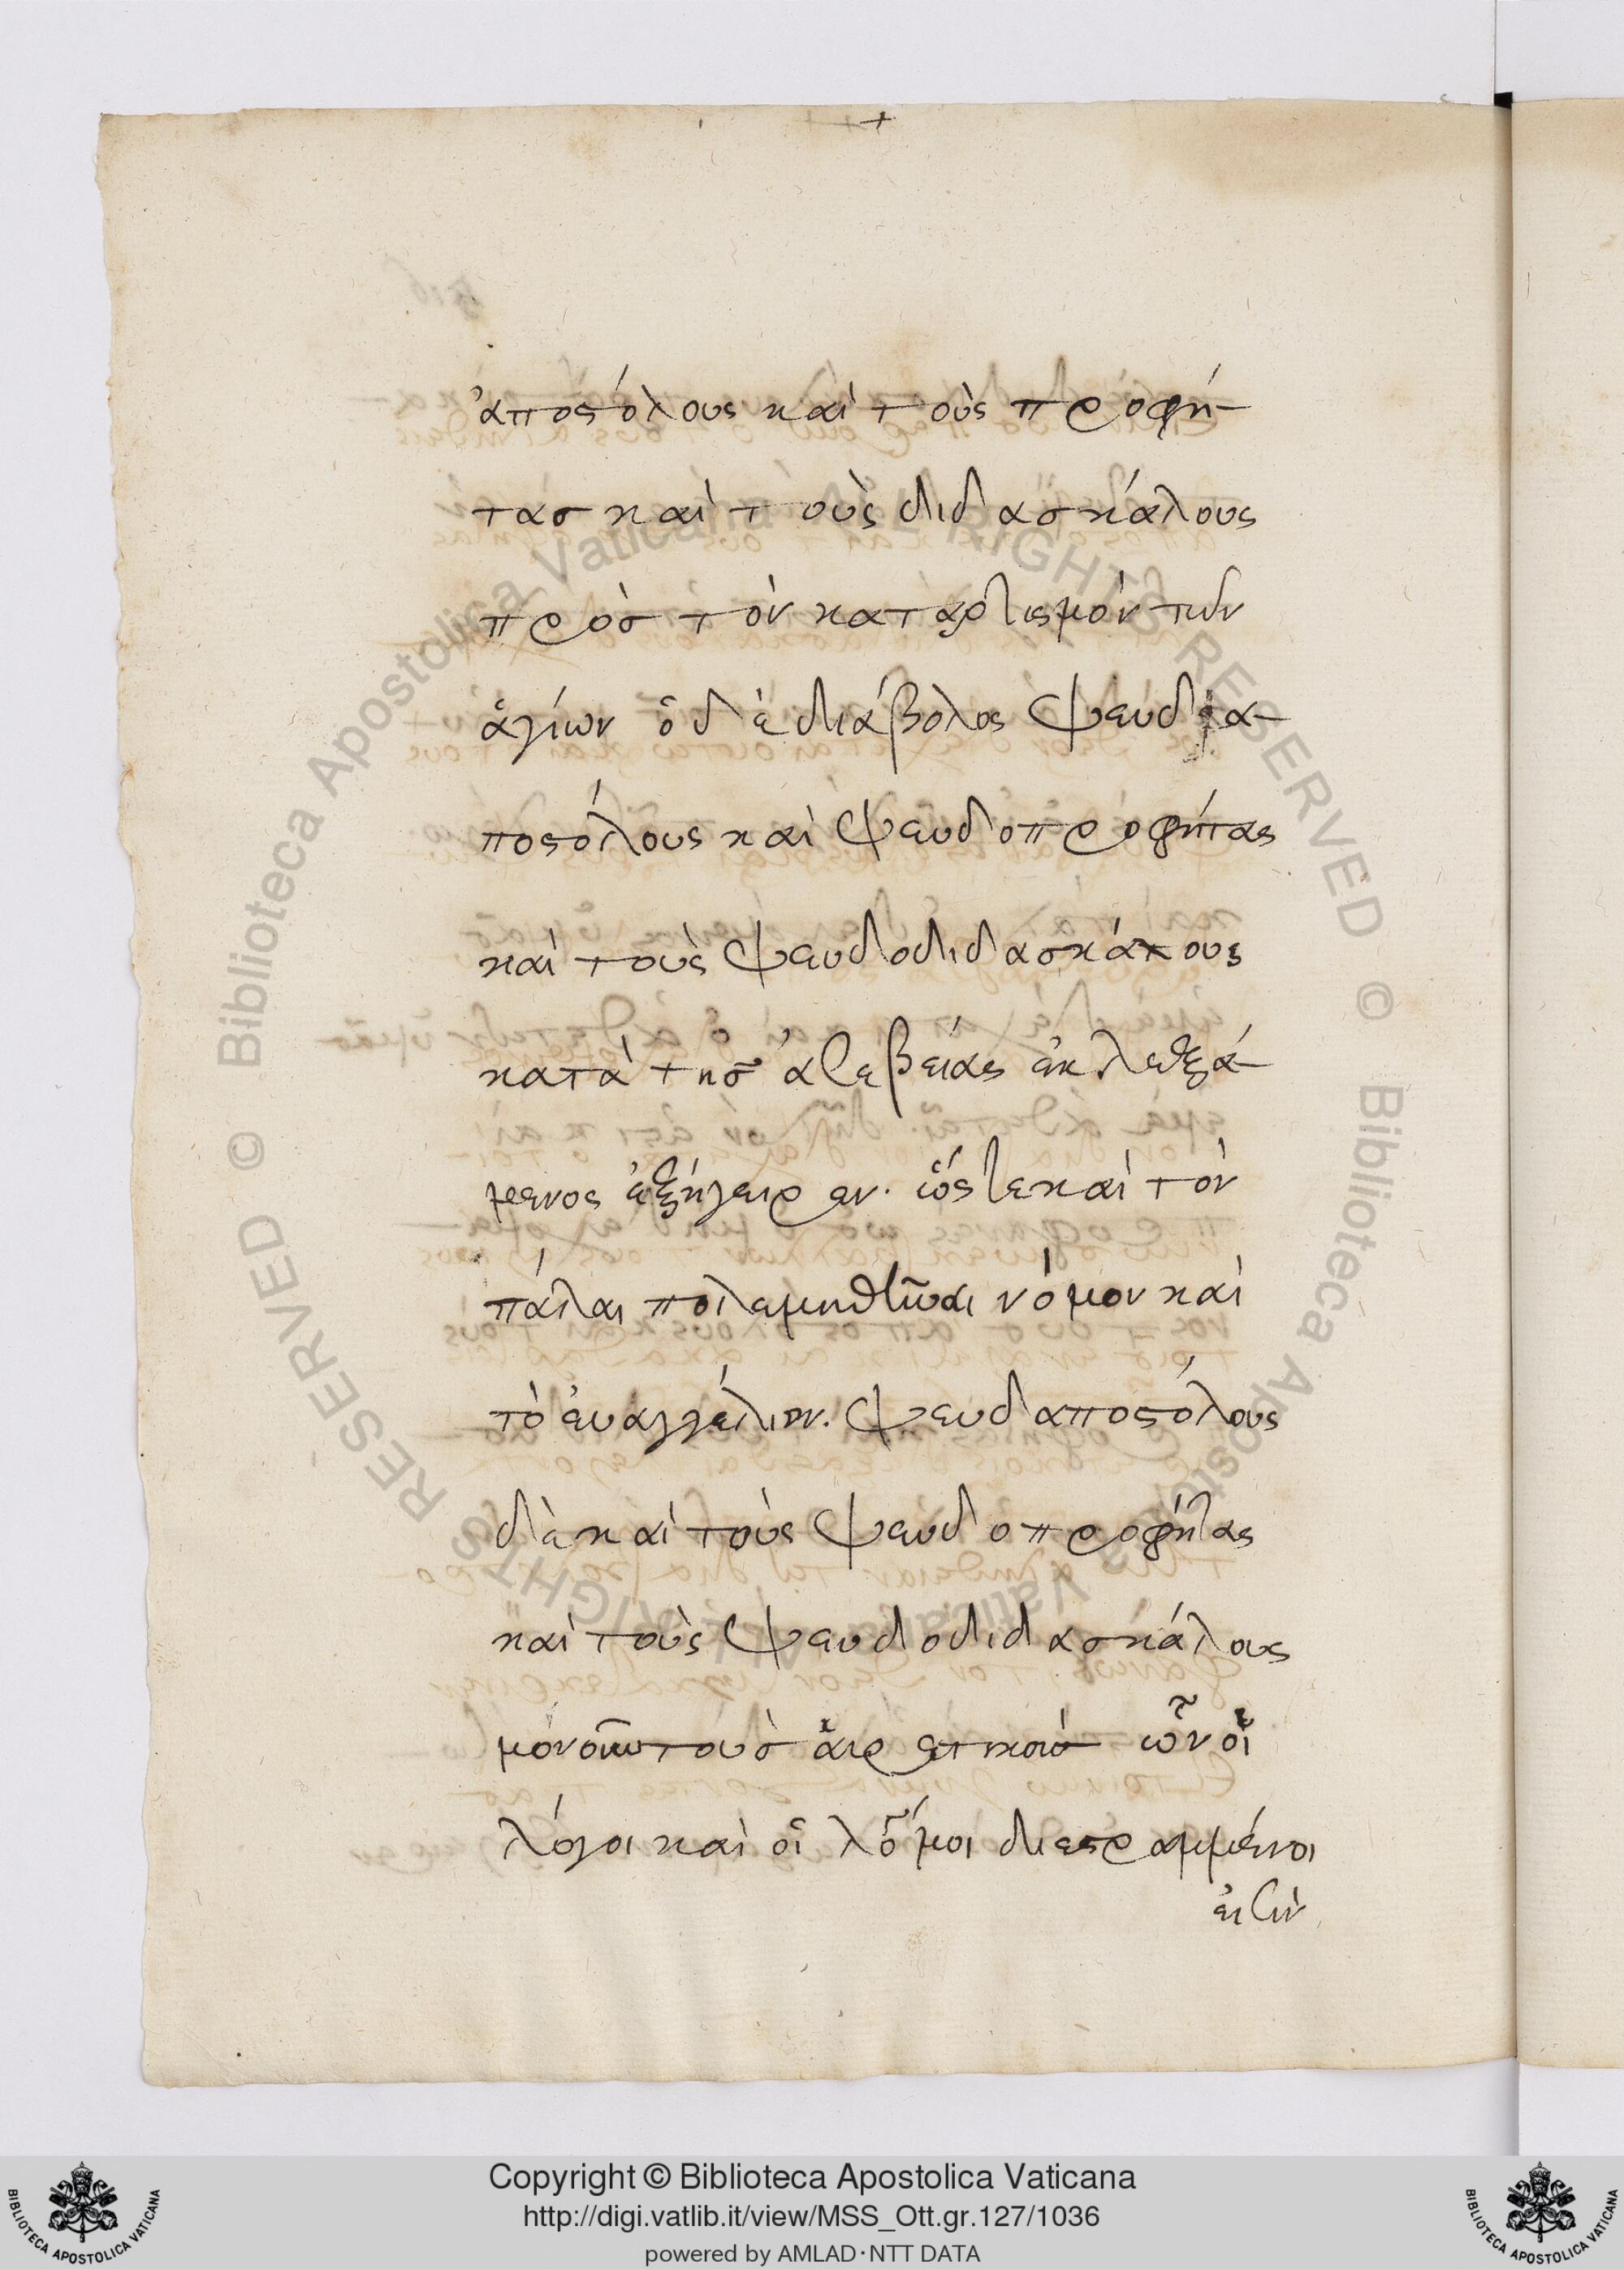 ἀποστόλους καὶ τοὺς προφή-
τας καὶ τοὺς διδασκάλους
πρὸς τὸν καταρτισμὸν τῶν
ἁγίων ὁ δὲ διάβολος ψευδα-
ποστόλους καὶ ψευδοπροφήτας
καὶ τοὺς ψευδοδιδασκάλους
κατὰ τῆς ἀσεβείας ἐκλεξά-
μενος ἐξήγειρεν. ὥστε καὶ τὸν
πάλαι πολεμηθῆναι νόμον καὶ
τὸ ἐυαγγέλιον. ψευδαποστόλους
δὲ καὶ τοὺς ψευδοπροφήτας
καὶ τοὺς ψευδοδιδασκάλους
τοὺς αἱρετικοὺς ὧν οἱ
λόγοι καὶ οἱ διεστραμμένοι
εἰσὶν
Copyright © Biblioteca Apostolica Vaticana
http://digi.vatlib.it/view/MSS_Ott.gr.127/1036
powered by AMLAD·NTT DATA
BIBLIOTECA APOSTOLICA VATICANA
BIBLIOTECA APOSTOLICA VATICANA
© Biblioteca Apostolica Vaticana ALL RIGHTS RESERVED
© Biblioteca Apostolica Vaticana ALL RIGHTS RESERVED